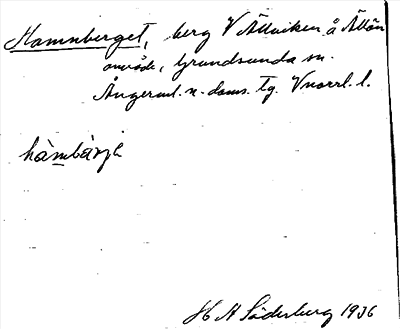 Hamnberget, berg V Älviken å Ällön
område, Grundsunda sn.
Ångerml. n. doms. tg. Vnorrl. l.
hàmbǽrjə
H A Söderberg 1936